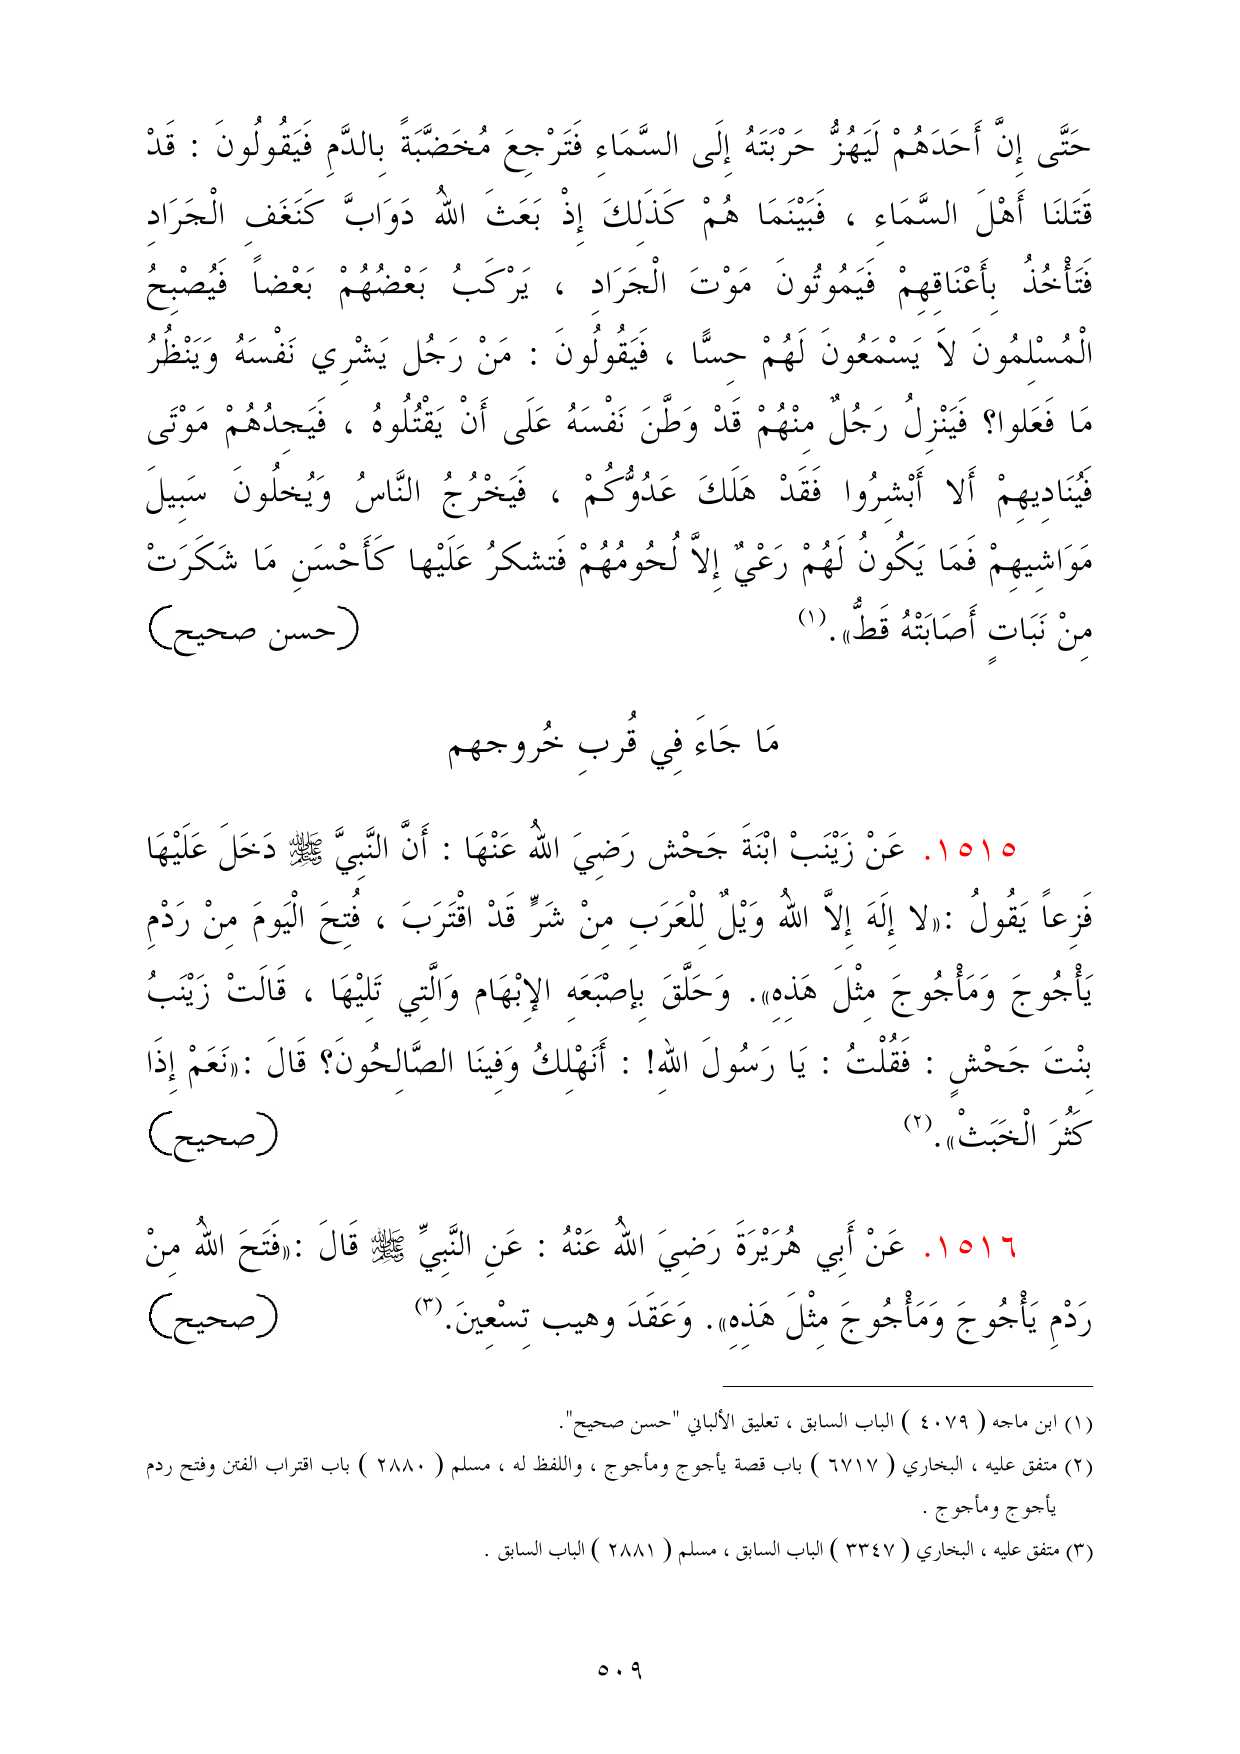 حَتَّى إِنَّ أَحَدَهُمْ لَيَهُزُّ حَرْبَتَهُ إِلَى السَّمَاءِ فَتَرْجِعَ مُخَضَّبَةً بِالدَّمِ فَيَقُولُونَ : قَدْ
قَتَلنَا أَهْلَ السَّمَاءِ ، فَبَيْنَمَا هُمْ كَذَلِكَ إِذْ بَعَثَ اللهُ دَوَابَّ كَنَغَفِ الْجَرَادِ
فَتَأْخُذُ بِأَعْنَاقِهِمْ فَيَمُوتُونَ مَوْتَ الْجَرَادِ ، يَرْكَبُ بَعْضُهُمْ بَعْضاً فَيُصْبِحُ
الْمُسْلِمُونَ لاَ يَسْمَعُونَ لَهُمْ حِسًّا ، فَيَقُولُونَ : مَنْ رَجُل يَشْرِي نَفْسَهُ وَيَنْظُرُ
مَا فَعَلوا؟ فَيَنْزِلُ رَجُلٌ مِنْهُمْ قَدْ وَطَّنَ نَفْسَهُ عَلَى أَنْ يَقْتُلُوهُ ، فَيَجِدُهُمْ مَوْتَى
فَيُنَادِيهِمْ أَلا أَبْشِرُوا فَقَدْ هَلَكَ عَدُوُّكُمْ ، فَيَخْرُجُ النَّاسُ وَيُخلُونَ سَبِيلَ
مَوَاشِيهِمْ فَمَا يَكُونُ لَهُمْ رَعْيٌ إِلاَّ لُحُومُهُمْ فَتشكرُ عَلَيْها كَأَحْسَنِ مَا شَكَرَتْ
مِنْ نَبَاتٍ أَصَابَتْهُ قَطُّ». (١) (حسن صحيح)
مَا جَاءَ فِي قُربِ خُروجهم
١٥١٥. عَنْ زَيْنَبْ ابْنَةَ جَحْش رَضِيَ اللهُ عَنْهَا : أَنَّ النَّبِيَّ ﷺ دَخَلَ عَلَيْهَا
فَزِعاً يَقُولُ :«لا إِلَهَ إِلاَّ اللهُ وَيْلٌ لِلْعَرَبِ مِنْ شَرٍّ قَدْ اقْتَرَبَ ، فُتِحَ الْيَومَ مِنْ رَدْمِ
يَأْجُوجَ وَمَأْجُوجَ مِثْلَ هَذِهِ». وَحَلَّقَ بِإصْبَعَهِ الإِبْهَام وَالَّتِي تَلِيْهَا ، قَالَتْ زَيْنَبُ
بِنْتَ جَحْشٍ : فَقُلْتُ : يَا رَسُولَ اللهِ! : أَنَهْلِكُ وَفِينَا الصَّالِحُونَ؟ قَالَ :«نَعَمْ إِذَا
كَثُرَ الْخَبَثْ». (٢) (صحيح)
١٥١٦. عَنْ أَبِي هُرَيْرَةَ رَضِيَ اللهُ عَنْهُ : عَنِ النَّبِيِّ ﷺ قَالَ :«فَتَحَ اللهُ مِنْ
رَدْمِ يَأْجُوجَ وَمَأْجُوجَ مِثْلَ هَذِهِ». وَعَقَدَ وهيب تِسْعِينَ. (٣) (صحيح)
(١) ابن ماجه ( ٤٠٧٩ ) الباب السابق ، تعليق الألباني "حسن صحيح".
(٢) متفق عليه ، البخاري ( ٦٧١٧ ) باب قصة يأجوج ومأجوج ، واللفظ له ، مسلم ( ٢٨٨٠ ) باب اقتراب الفتن وفتح ردم
يأجوج ومأجوج .
(٣) متفق عليه ، البخاري ( ٣٣٤٧ ) الباب السابق ، مسلم ( ٢٨٨١ ) الباب السابق .
٥٠٩